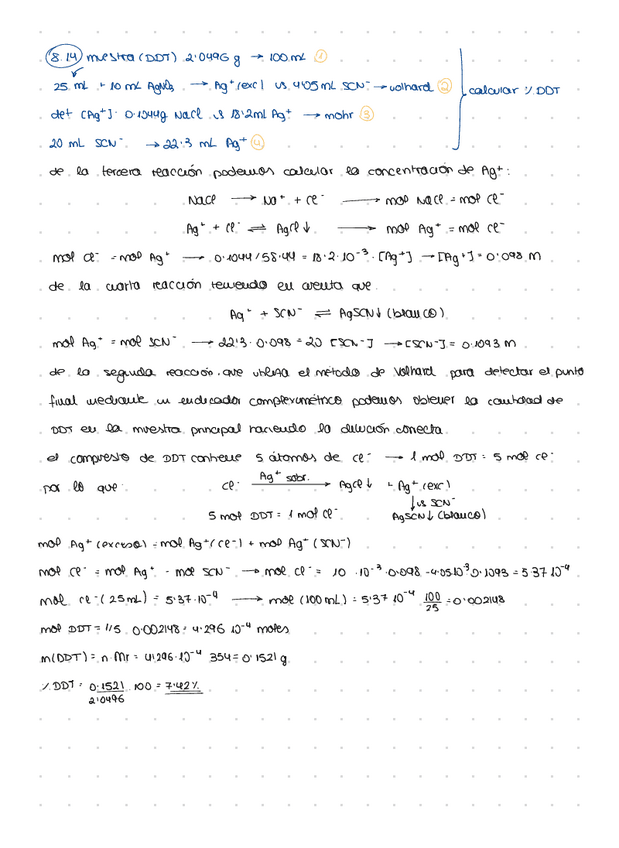 8.14 muestra (DDT) 2.0496 g → 100 mL ①
25 mL + 10 mL AgNO₃ → Ag⁺ (exc) vs 4.05 mL SCN⁻ → volhard ②
det [Ag⁺]: 0.1044g NaCl vs 18.2 mL Ag⁺ → mohr ③
20 mL SCN⁻ → 22.3 mL Ag⁺ ④
calcular % DDT
de la tercera reacción podemos calcular la concentración de Ag⁺:
NaCl → Na⁺ + Cl⁻ → mol NaCl = mol Cl⁻
Ag⁺ + Cl⁻ ⇌ AgCl↓ → mol Ag⁺ = mol Cl⁻
mol Cl⁻ = mol Ag⁺ → 0.1044/58.44 = 18.2·10⁻³·[Ag⁺] → [Ag⁺] = 0.098 M
de la cuarta reacción teniendo en cuenta que
Ag⁺ + SCN⁻ ⇌ AgSCN↓ (blanco)
mol Ag⁺ = mol SCN⁻ → 22.3·0.098 = 20 [SCN⁻] → [SCN⁻] = 0.1093 M
de la segunda reacción, que utiliza el método de Volhard para detectar el punto
final mediante un indicador complexométrico podemos obtener la cantidad de
DDT en la muestra principal haciendo la dilución correcta
el compuesto de DDT contiene 5 átomos de Cl⁻ → 1 mol DDT = 5 mol Cl⁻
por lo que Cl⁻ Ag⁺ sobr. → AgCl↓ + Ag⁺ (exc)
↓ vs SCN⁻
5 mol DDT = 1 mol Cl⁻ AgSCN↓ (blanco)
mol Ag⁺ (exceso) = mol Ag⁺ (Cl⁻) + mol Ag⁺ (SCN⁻)
mol Cl⁻ = mol Ag⁺ - mol SCN⁻ → mol Cl⁻ = 10·10⁻³·0.098 - 4.05·10⁻³·0.1093 = 5.37·10⁻⁴
mol Cl⁻ (25mL) = 5.37·10⁻⁴ → mol (100 mL) = 5.37·10⁻⁴ · 100/25 = 0.002148
mol DDT = 1/5 · 0.002148 = 4.296·10⁻⁴ moles
m(DDT) = n·Mr = 4.296·10⁻⁴·354 = 0.1521 g
% DDT = 0.1521/2.0496 · 100 = 7.42%